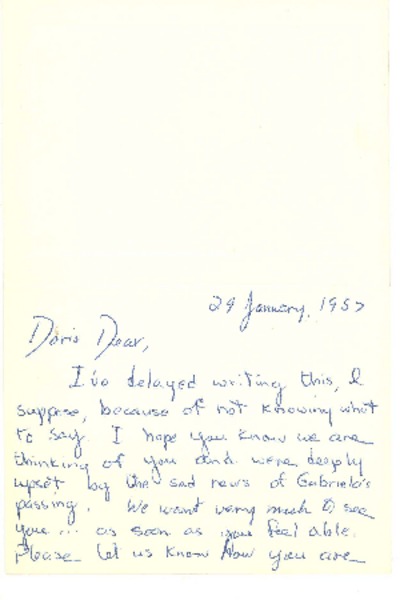 29 January, 1957
Doris Dear,
I've delayed writing this, I
suppose, because of not knowing what
to say. I hope you know we are
thinking of you and were deeply
upset by the sad news of Gabriela's
passing. We want very much to see
you... as soon as you feel able.
Please let us know how you are